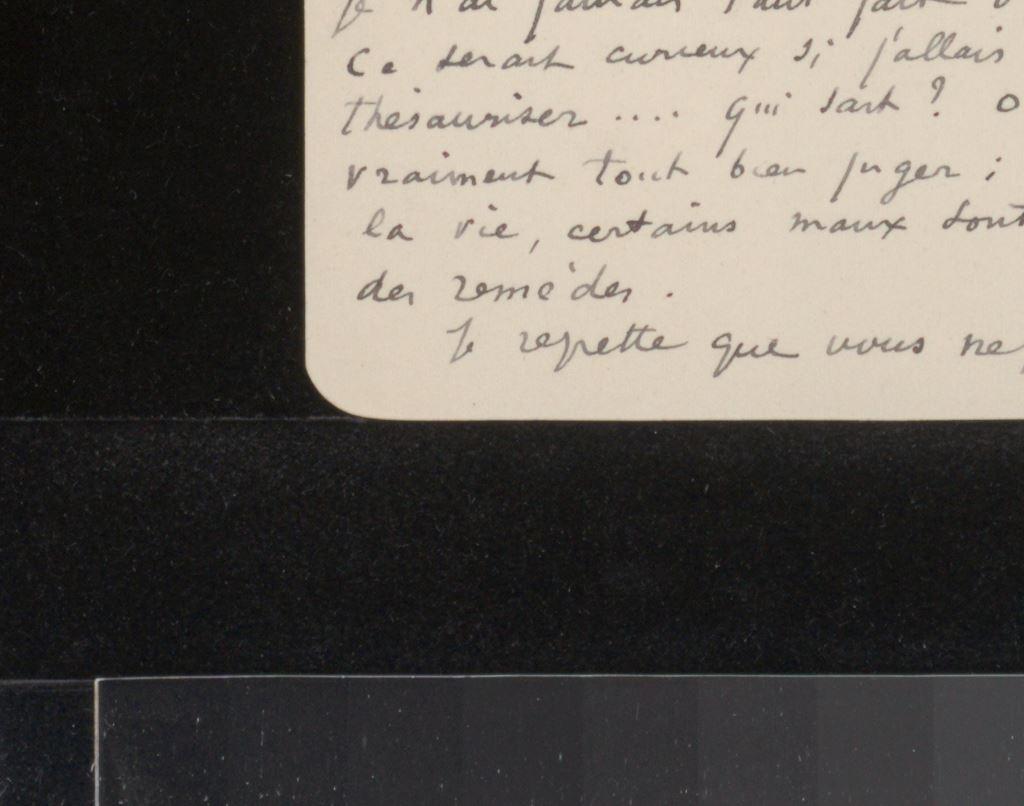 Je n'ai jamais tant fait
Ce serait curieux si j'allais
thésauriser .... qui sait ?
vraiment tout bien juger ;
la vie, certains maux sont
des remèdes .
Je regrette que vous ne